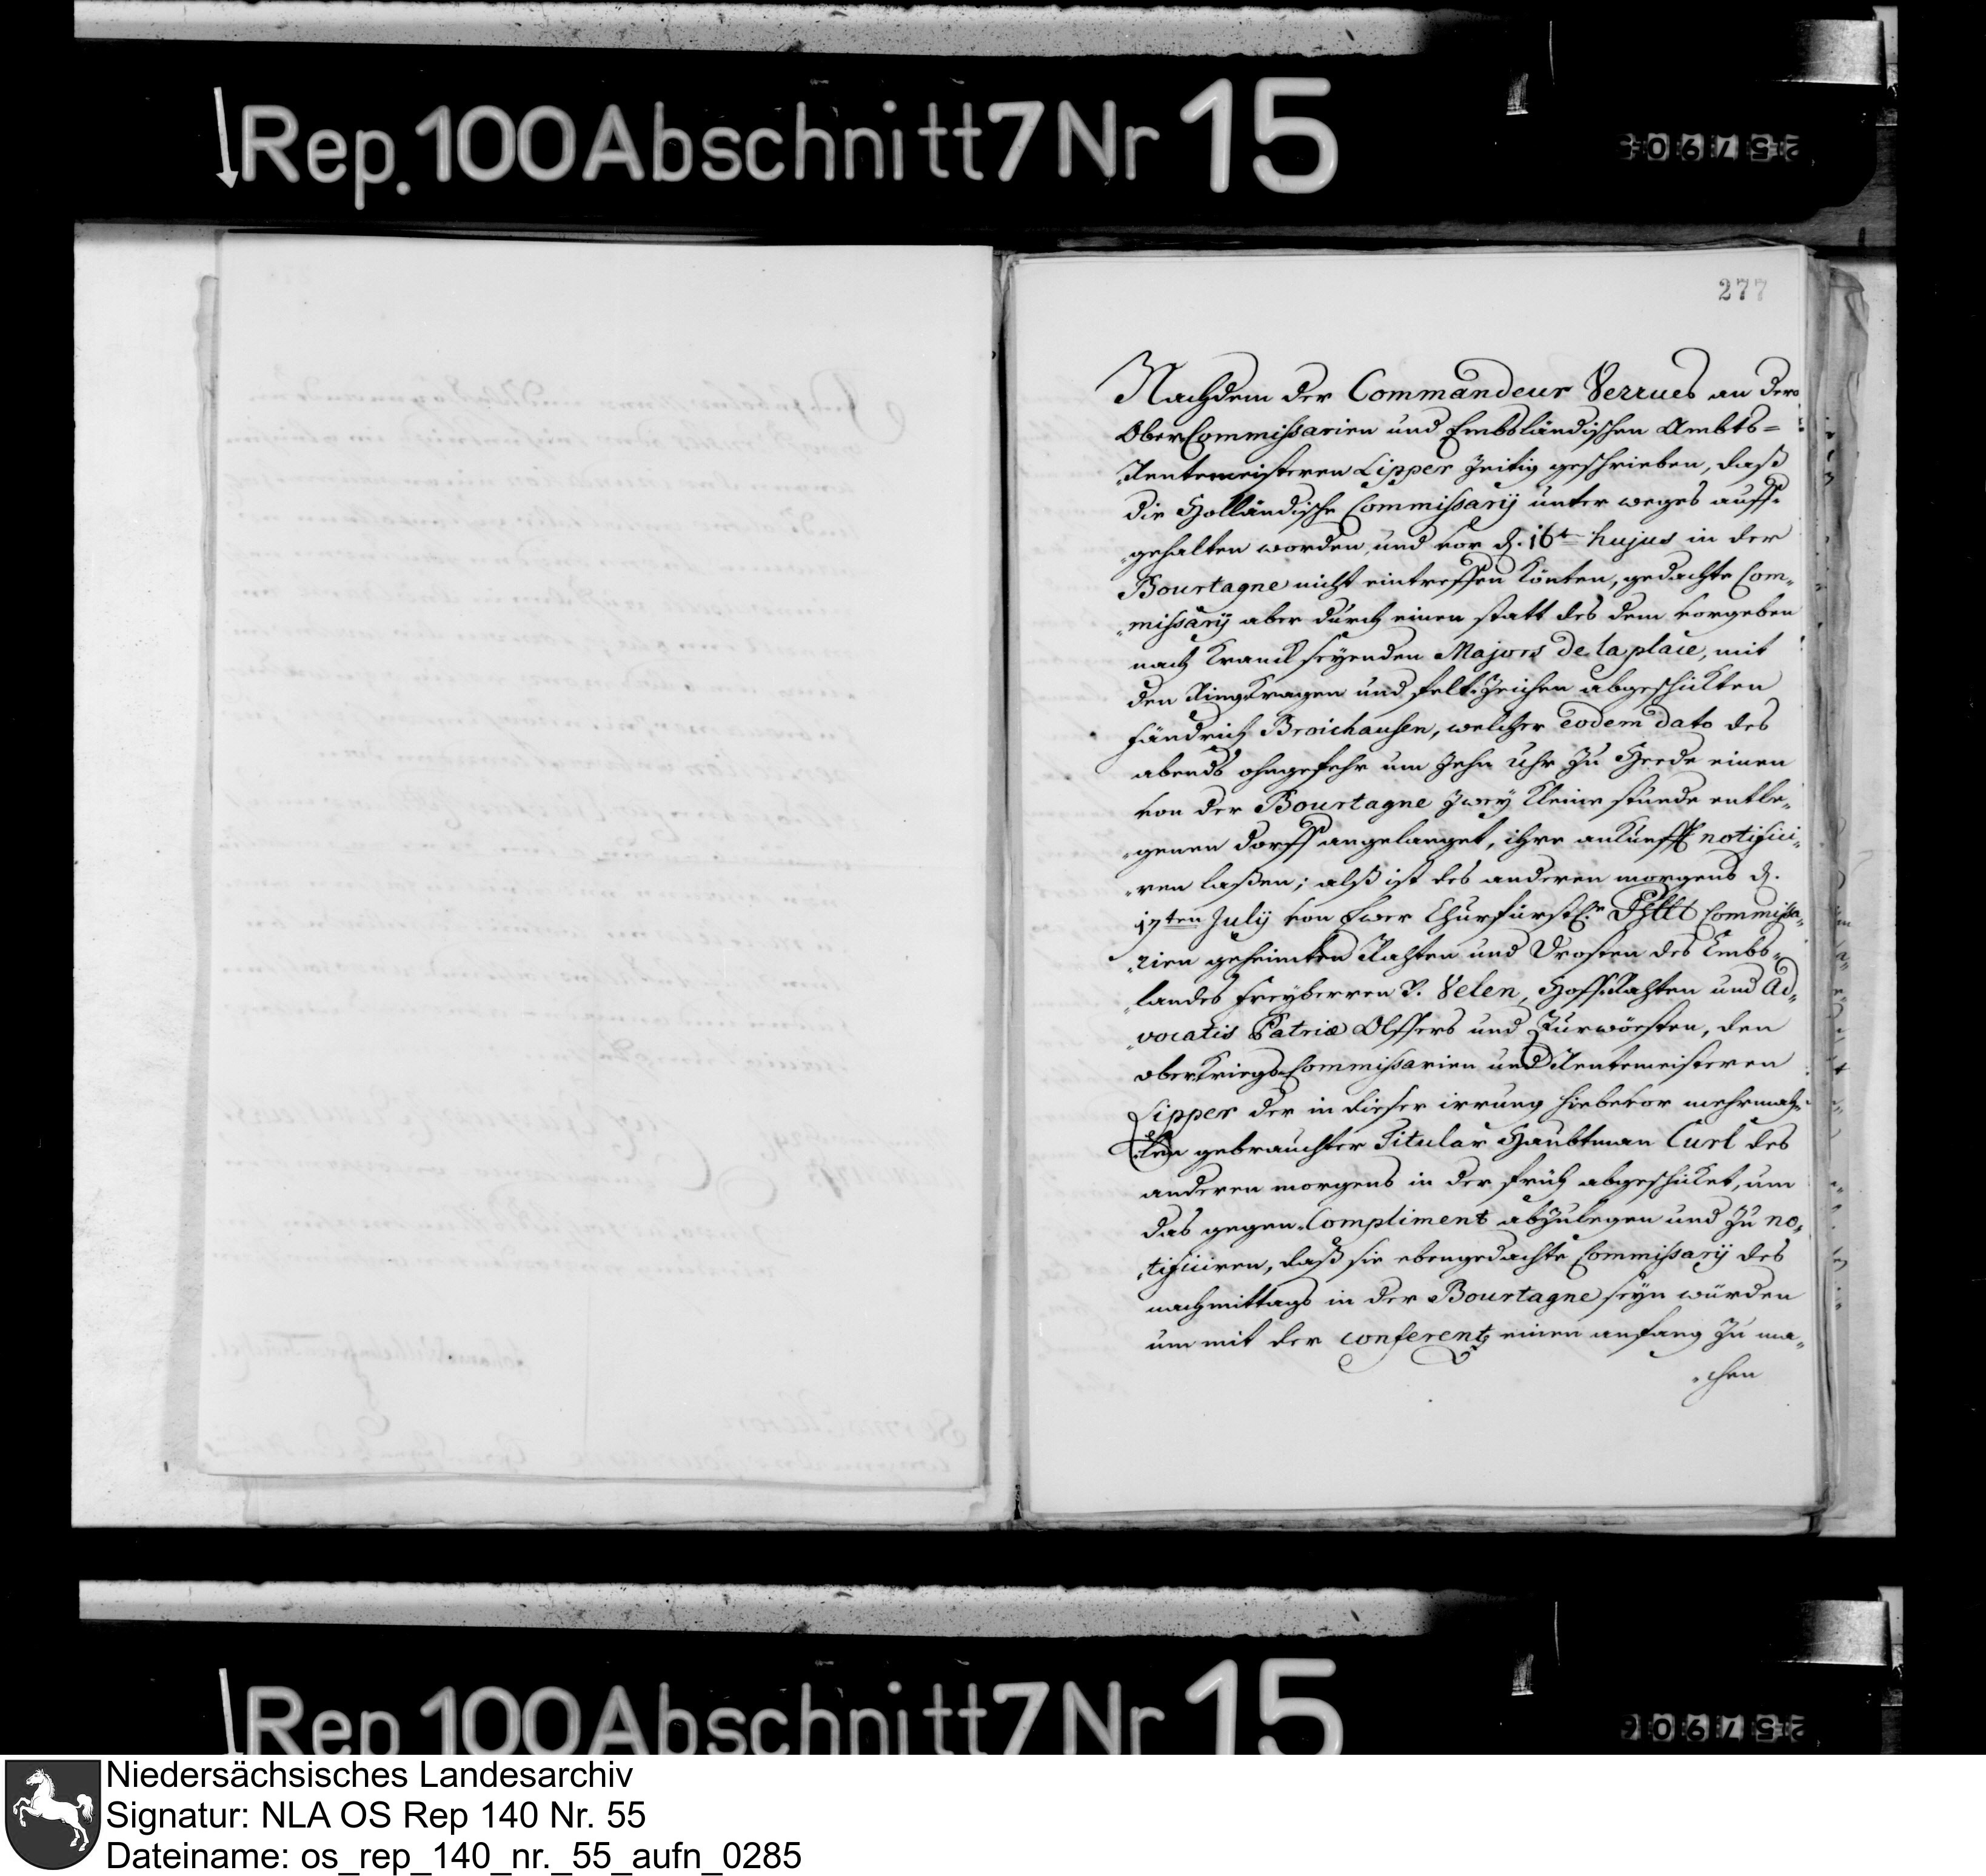 Rep. 100 Abschnitt 7 Nr 15
277
Nachdem der Commandeur Verrues an dero
OberCommissarien und Embsländischen Ambts=
Rentemeisteren Lipper zeitig geschrieben, daß
die Holländische Commissarij unter weges auff„
„gehalten worden, und vor d. 16t hujus in der
Bourtagne nicht eintreffen könten, gedachte Com„
„missarij aber durch einen statt des dem vorgeben
nach kranck seyenden Majors de la place, mit
den Ringkragen und feltzeichen abgeschickten
fändrich Broichausen, welcher eodem dato des
abends ohngefehr um zehn Uhr zu Heede einen
von der Bourtagne zwey kleine stunde entle„
„genen dorff angelanget, ihre ankunfft notifici„
„ren laßen; alß ist des anderen morgens d.
17ten Julij von Ewer Churfürstl.r Dhltt Commissa„
„rien geheimten Rahten und Drosten des Embs„
„landes Freyherren v. Velen, Hoffrahten und Ad„
„vocatis Patriæ Olffers und Zurwörsten, den
oberKriegsCommissarien und Rentemeisteren
Lipper der in dieser irrung hiebevor mehrmah„
„len gebrauchter Titular Haubtman Curl des
anderen morgens in der früh abgeschicket, um
das gegen-Compliment abzulegen und zu no„
„tificiren, daß sie ebengedachte Commissarij des
nachmittags in der Bourtagne seyn würden
um mit der conferentz einen anfang zu ma„
„chen
Rep 100 Abschnitt 7 Nr 15
Niedersächsisches Landesarchiv
Signatur: NLA OS Rep 140 Nr. 55
Dateiname: os_rep_140_nr._55_aufn_0285